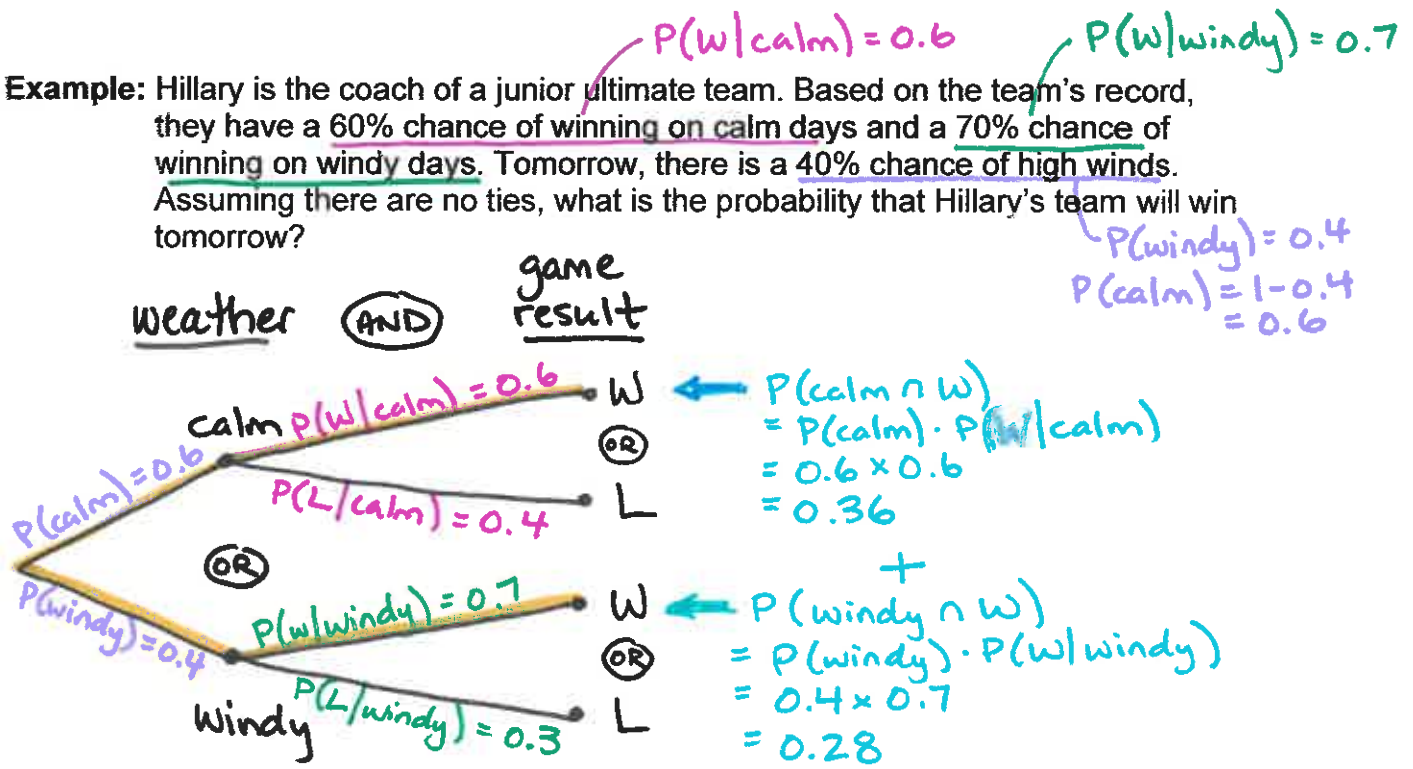 P(W|calm) = 0.6 P(W|windy) = 0.7
Example: Hillary is the coach of a junior ultimate team. Based on the team's record,
they have a 60% chance of winning on calm days and a 70% chance of
winning on windy days. Tomorrow, there is a 40% chance of high winds.
Assuming there are no ties, what is the probability that Hillary's team will win
tomorrow?
P(windy) = 0.4
P(calm) = 1-0.4
= 0.6
weather AND game result
calm
P(calm) = 0.6
P(W|calm) = 0.6
W
OR
P(L|calm) = 0.4
L
P(calm ∩ W)
= P(calm) · P(W|calm)
= 0.6 × 0.6
= 0.36
OR
+
P(windy) = 0.4
windy
P(W|windy) = 0.7
W
OR
P(L|windy) = 0.3
L
P(windy ∩ W)
= P(windy) · P(W|windy)
= 0.4 × 0.7
= 0.28